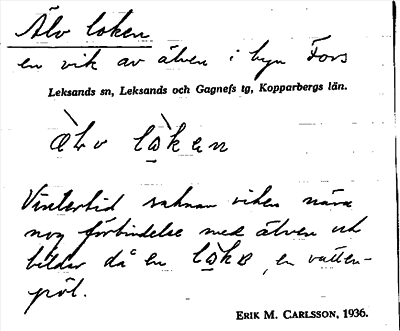 Älv loken
en vik av älven i byn Fors
Leksands sn, Leksands och Gagnefs tg, Kopparbergs län.
Vintertid saknar viken nära
nog förbindelse med älven och
bildar då en en vatten-
pöl.
ERIK M. CARLSSON, 1936.